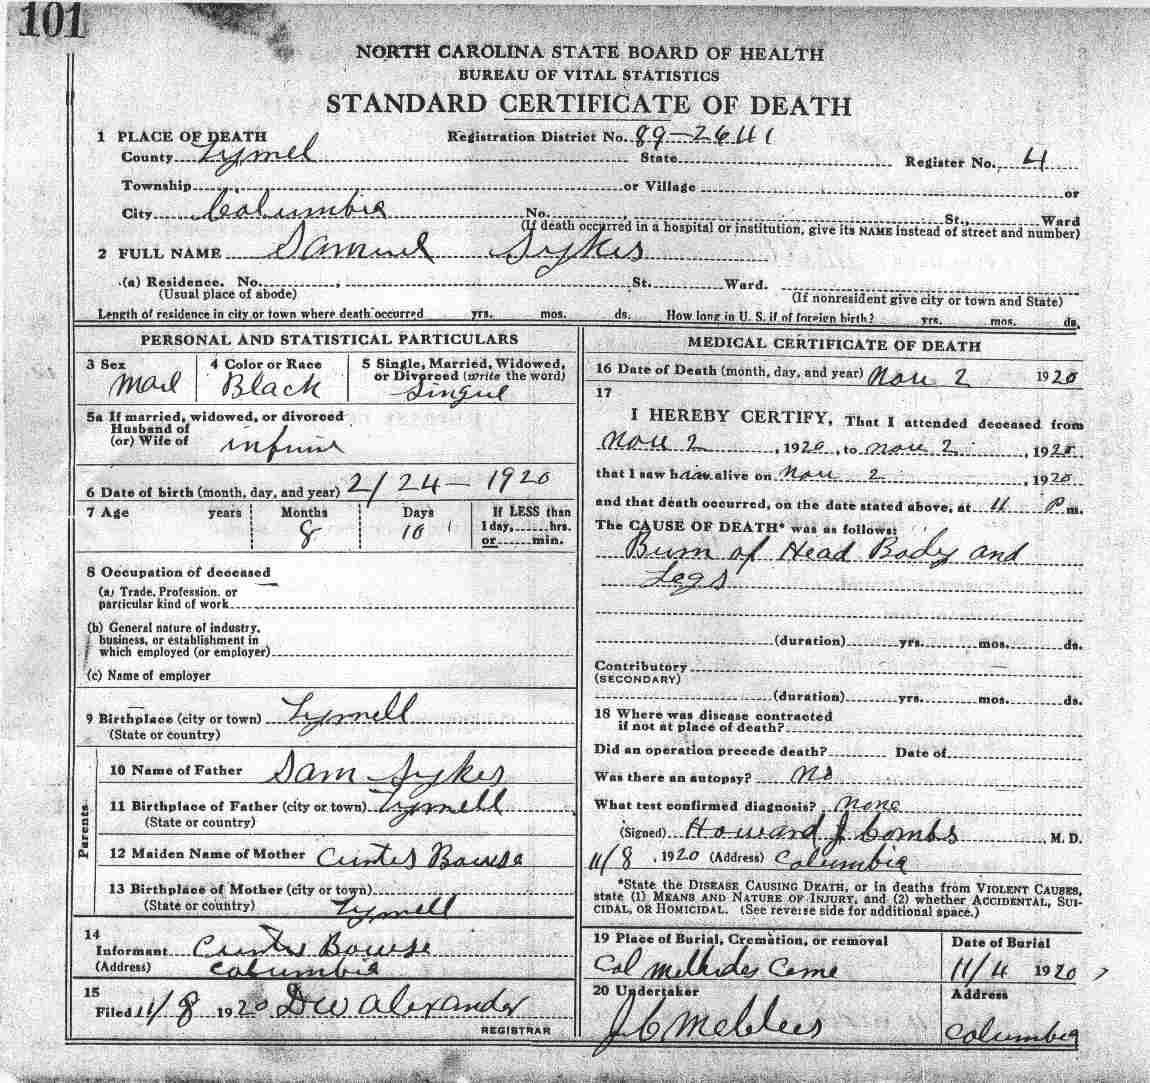 101
NORTH CAROLINA STATE BOARD OF HEALTH
BUREAU OF VITAL STATISTICS
STANDARD CERTIFICATE OF DEATH
1 PLACE OF DEATH Registration District No. 89-2641
County Tyrrell State Register No. 4
Township or Village or
City Columbia No. St., Ward
(If death occurred in a hospital or institution, give its NAME instead of street and number)
2 FULL NAME Samuel Sykes
(a) Residence. No. , St. Ward.
(Usual place of abode) (If nonresident give city or town and State)
Length of residence in city or town where death occurred yrs. mos. ds. How long in U. S. if of foreign birth? yrs. mos. ds.
PERSONAL AND STATISTICAL PARTICULARS
3 Sex 4 Color or Race 5 Single, Married, Widowed,
or Divorced (write the word)
Black
5a If married, widowed, or divorced
Husband of
(or) Wife of
6 Date of birth (month, day, and year) 2/24-1920
7 Age years Months Days If LESS than
8 10 1 day, hrs.
or min.
8 Occupation of deceased
(a) Trade, Profession, or
particular kind of work
(b) General nature of industry,
business, or establishment in
which employed (or employer)
(c) Name of employer
9 Birthplace (city or town)
(State or country)
Parents
10 Name of Father Sam Sykes
11 Birthplace of Father (city or town)
(State or country)
12 Maiden Name of Mother
13 Birthplace of Mother (city or town)
(State or country)
14
Informant
(Address) Columbia
15
Filed 11/8 1920 DW Alexander
REGISTRAR
MEDICAL CERTIFICATE OF DEATH
16 Date of Death (month, day, and year) Nov 2 1920
17
I HEREBY CERTIFY, That I attended deceased from
Nov 2 , 1920, to Nov 2 , 1920
that I saw him alive on Nov 2 , 1920
and that death occurred, on the date stated above, at P m.
The CAUSE OF DEATH* was as follows:
Burn of Head Body and
Legs
(duration) yrs. mos. ds.
Contributory
(SECONDARY)
(duration) yrs. mos. ds.
18 Where was disease contracted
if not at place of death?
Did an operation precede death? Date of
Was there an autopsy? No
What test confirmed diagnosis? none
(Signed) Howard J Combs, M. D.
11/8, 1920 (Address) Columbia
*State the DISEASE CAUSING DEATH, or in deaths from VIOLENT CAUSES,
state (1) MEANS AND NATURE OF INJURY, and (2) whether ACCIDENTAL, SUI-
CIDAL, OR HOMICIDAL. (See reverse side for additional space.)
19 Place of Burial, Cremation, or removal Date of Burial
Col 11/4 1920
20 Undertaker Address
Columbia